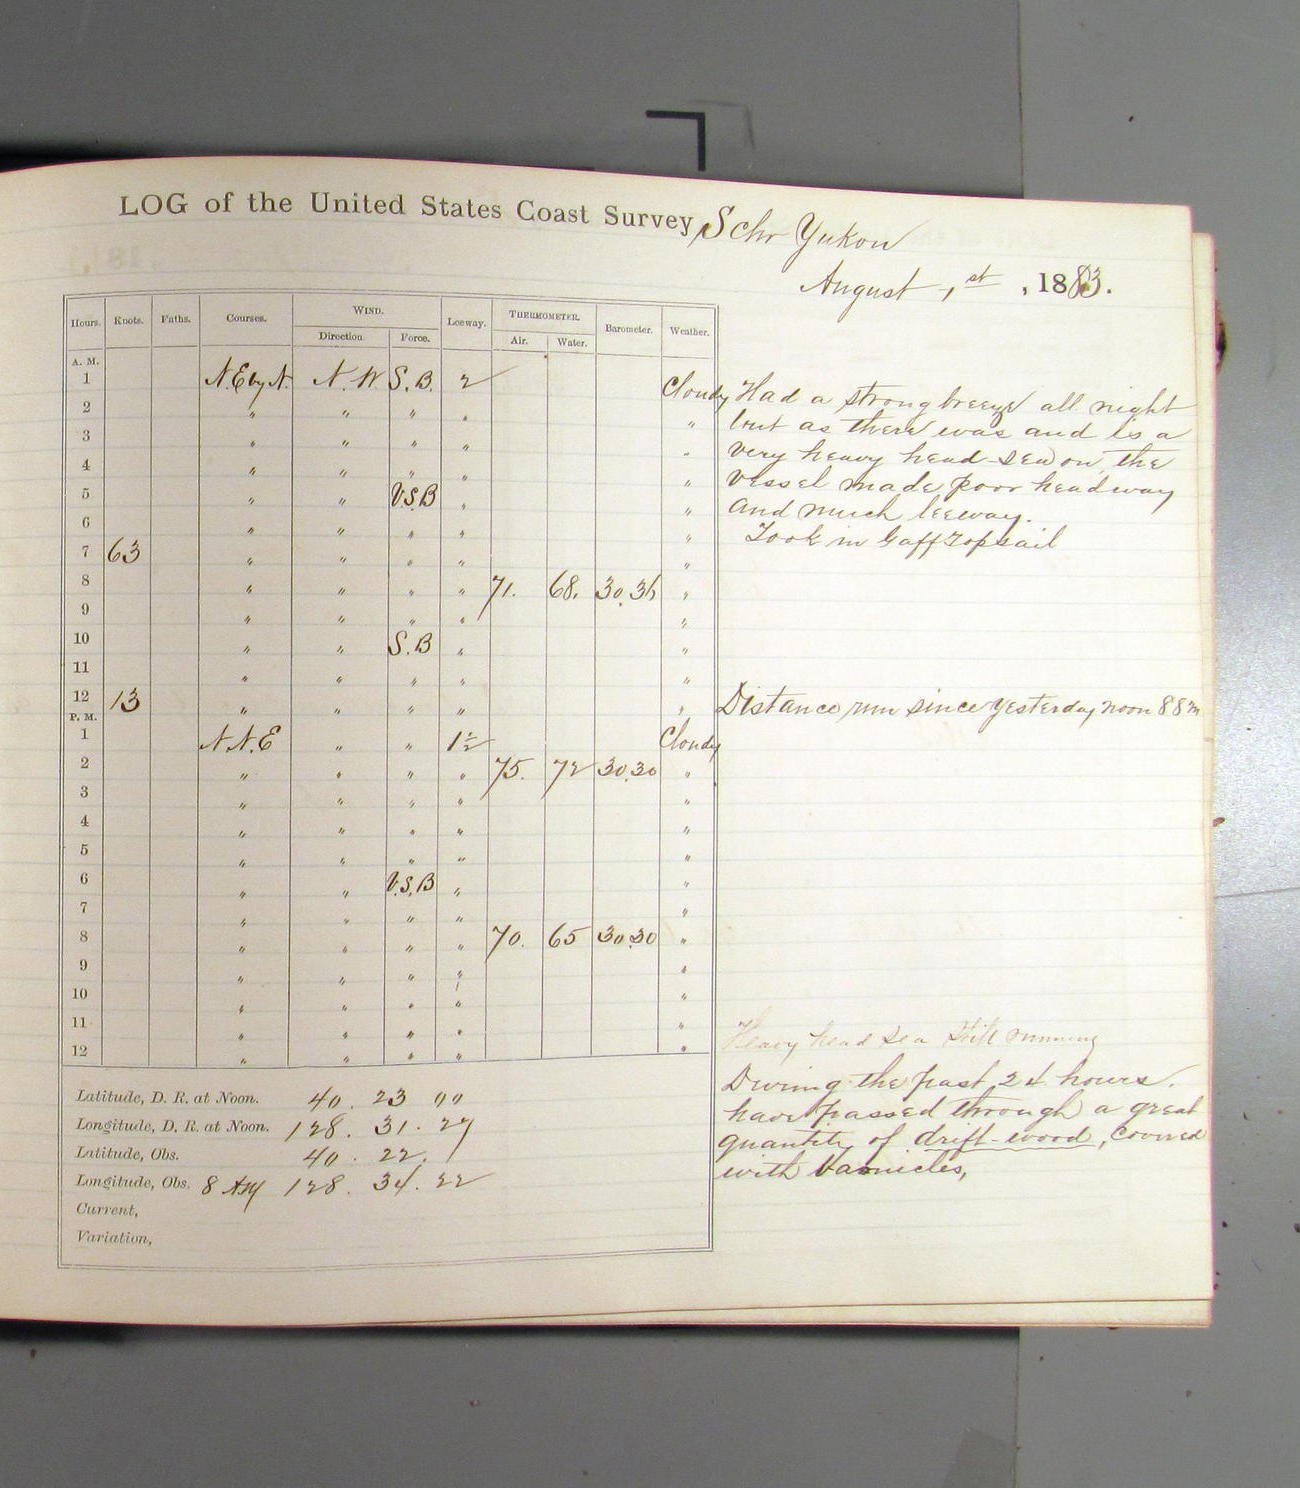 LOG of the United States Coast Survey Schr Yukon
August 1st, 1883.
Hours. Knots. Faths. Courses. WIND. Leeway. THERMOMETER. Barometer. Weather.
Direction. Force. Air. Water.
A. M.
1 N.E by N. N.W S.B. 2 Cloudy Had a strong breeze all night
2 " " " " " but as there was and is a
3 " " " " " very heavy head sea on, the
4 " " " " " vessel made poor headway
5 " " V.S.B " " and much leeway.
6 " " " " " Took in Gaff Topsail
7 63 " " " " "
8 " " " " 71. 68. 30.36 "
9 " " " " "
10 " " S.B " "
11 " " " " "
12 13 " " " " " Distance run since yesterday noon 88 m
P. M.
1 N.N.E " " 1½ Cloudy
2 " " " " 75. 72 30.30 "
3 " " " " "
4 " " " " "
5 " " " " "
6 " " V.S.B " "
7 " " " " "
8 " " " " 70. 65 30.30 "
9 " " " " "
10 " " " " "
11 " " " " "
12 " " " " "
Heavy head sea still running
During the past 24 hours.
have passed through a great
quantity of drift-wood, covered
with barnicles,
Latitude, D. R. at Noon. 40. 23 "
Longitude, D. R. at Noon. 128. 31. 27
Latitude, Obs. 40. 22.
Longitude, Obs. 8 AM 128. 34. 22
Current,
Variation,